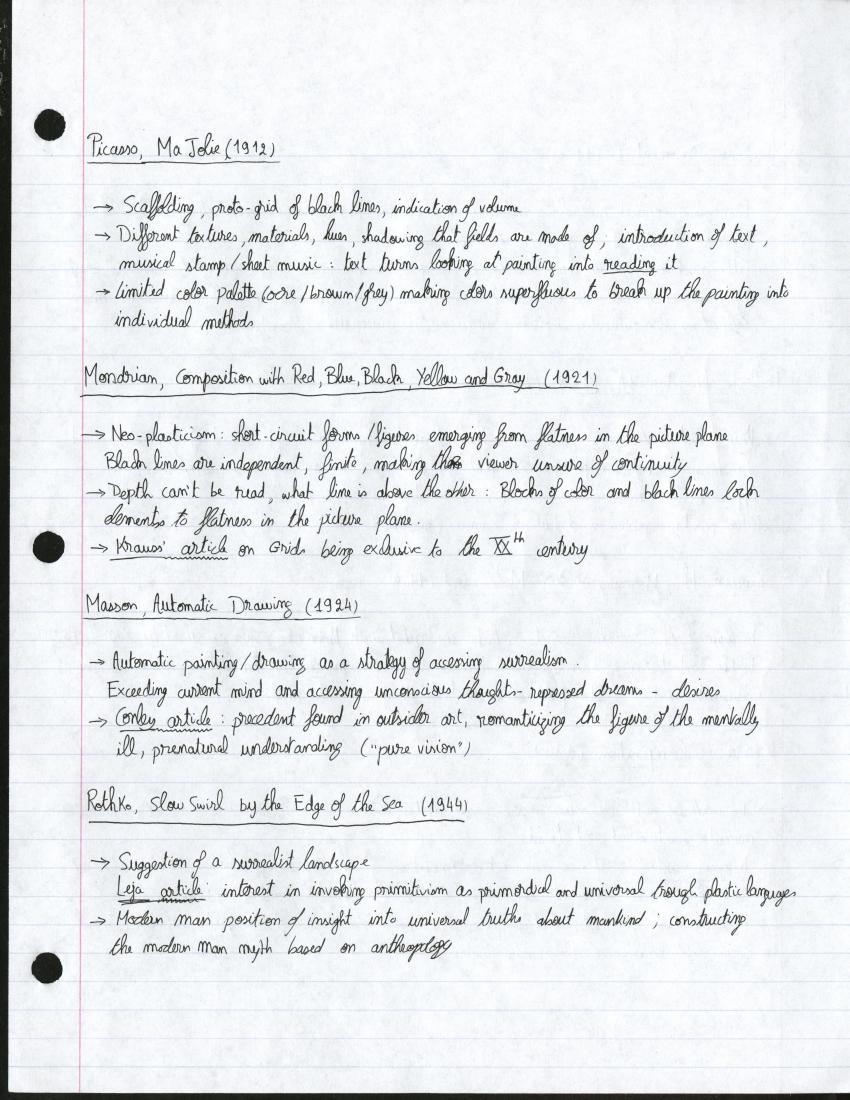 Picasso, Ma Jolie (1912)
→ Scaffolding, proto-grid of black lines, indication of volume
→ Different textures, materials, hues, shadowing that fields are made of; introduction of text,
musical stamp/sheet music: text turns looking at painting into reading it
→ Limited color palette (ocre/brown/grey) making colors superfluous to break up the painting into
individual methods
Mondrian, Composition with Red, Blue, Black, Yellow and Gray (1921)
→ Neo-plasticism: short-circuit forms/figures emerging from flatness in the picture plane
Black lines are independent, finite, making the viewer unsure of continuity
→ Depth can't be read, what line is above the other: Blocks of color and black lines lock
elements to flatness in the picture plane.
→ Krauss' article on Grids being exclusive to the XXth century
Masson, Automatic Drawing (1924)
→ Automatic painting/drawing as a strategy of accessing surrealism.
Exceeding current mind and accessing unconscious thoughts - repressed dreams - desires
→ Conley article: precedent found in outsider art, romanticizing the figure of the mentally
ill, prenatural understanding ("pure vision")
Rothko, Slow Swirl by the Edge of the Sea (1944)
→ Suggestion of a surrealist landscape
Leja article: interest in invoking primitivism as primordial and universal trough plastic languages
→ Modern man position of insight into universal truths about mankind; constructing
the modern man myth based on